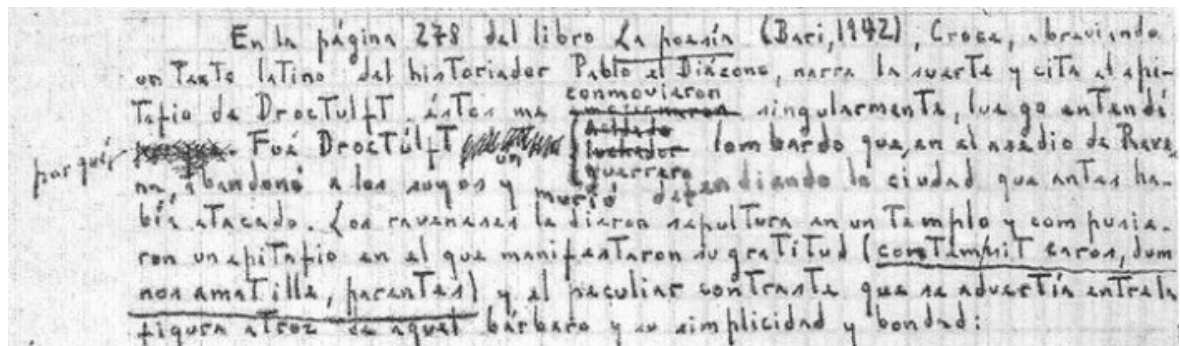 En la página 278 del libro La poesía (Bari, 1942), Croce, abreviando
un texto latino del historiador Pablo el Diácono, narra la suerte y cita el epi-
conmovieron
tafio de Droctulft. éstos me singularmente, luego entendí
por qué. Fué Droctulft un
soldado
luchador
guerrero
lombardo que, en el asedio de Rave-
na, abandonó a los suyos y murió defendiendo la ciudad que antes ha-
bía atacado. Los raveneses le dieron sepultura en un templo y compusie-
ron un epitafio en el que manifestaron su gratitud (contempsit caros, dum
nos amat ille, parentes) y el peculiar contraste que se advertía entre la
figura atroz de aquel bárbaro y su simplicidad y bondad: